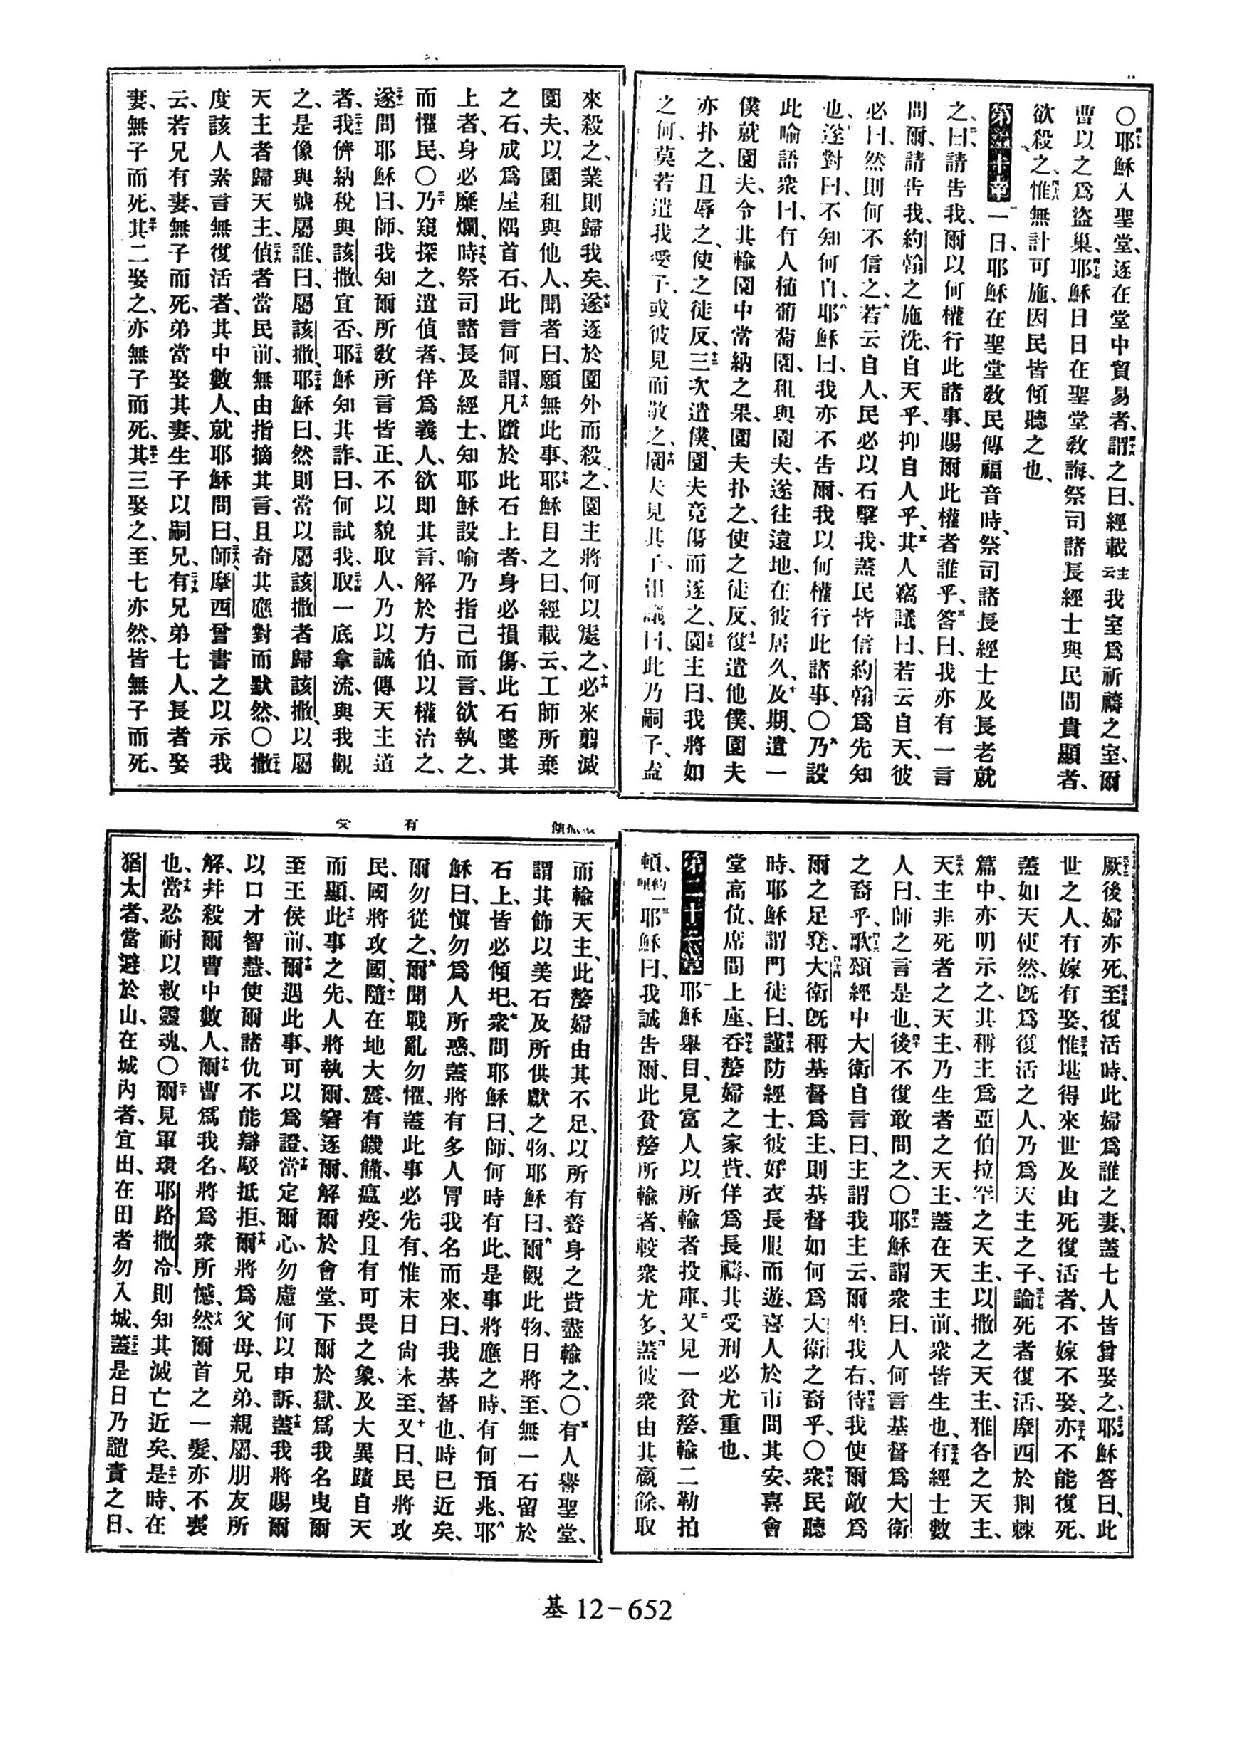 ○耶穌入聖堂、逐在堂中貿易者、謂之曰、經載云、我室爲祈禱之室、爾
曹以之爲盜巢、耶穌日日在聖堂敎誨、祭司諸長經士與民間貴顯者、
欲殺之、惟無計可施、因民皆傾聽之也、
第二十章 一日、耶穌在聖堂敎民傳福音時、祭司諸長經士及長老就
之、曰、請告我、爾以何權行此諸事、賜爾此權者誰乎、答曰、我亦有一言
問爾、請告我、約翰之施洗、自天乎、抑自人乎、其人竊議曰、若云自天、彼
必曰、然則何不信之、若云自人、民必以石擊我、蓋民皆信約翰爲先知
也、遂對曰、不知何自、耶穌曰、我亦不告爾、我以何權行此諸事、○乃設
此喻語衆曰、有人植葡萄園、租與園夫、遂往遠地、在彼居久、及期、遣一
僕就園夫、令其輸園中當納之果、園夫扑之、使之徒反、復遣他僕、園夫
亦扑之、且辱之、使之徒反、三次遣僕、園夫竟傷而逐之、園主曰、我將如
之何、莫若遣我愛子、或彼見而敬之、園夫見其子、相議曰、此乃嗣子、盍
來殺之、業則歸我矣、遂逐於園外而殺之、園主將何以處之、必來翦滅
園夫、以園租與他人、聞者曰、願無此事、耶穌目之曰、經載云、工師所棄
之石、成爲屋隅首石、此言何謂、凡躓於此石上者、身必損傷、此石墜其
上者、身必糜爛、時祭司諸長及經士、知耶穌設喻乃指己而言、欲執之、
而懼民、○乃窺探之、遣偵者、佯爲義人、欲即其言、解於方伯、以權治之、
遂問耶穌曰、師、我知爾所敎所言皆正、不以貌取人、乃以誠傳天主道
者、我儕納稅與該撒、宜否、耶穌知其詐、曰、何試我、取一底拿流、與我觀
之、是像與號屬誰、曰、屬該撒、耶穌曰、然則當以屬該撒者歸該撒、以屬
天主者歸天主、偵者當民前、無由指摘其言、且奇其應對而默然、○撒
度該人素言無復活者、其中數人、就耶穌問曰、師、摩西曾書之以示我
云、若兄有妻、無子而死、弟當娶其妻、生子以嗣兄、有兄弟七人、長者娶
妻、無子而死、其二娶之、亦無子而死、其三娶之、至七亦然、皆無子而死、
厥後婦亦死、至復活時、此婦爲誰之妻、蓋七人皆曾娶之、耶穌答曰、此
世之人、有嫁有娶、惟堪得來世及由死復活者、不嫁不娶、亦不能復死、
蓋如天使然、旣爲復活之人、乃爲天主之子、論死者復活、摩西於荆棘
篇中、亦明示之、其稱主爲亞伯拉罕之天主、以撒之天主、雅各之天主、
天主非死者之天主、乃生者之天主、蓋在天主前、衆皆生也、有經士數
人曰、師之言是也、後不復敢問之、○耶穌謂衆曰、人何言基督爲大衛
之裔乎、歌頌經中大衛自言曰、主謂我主云、爾坐我右、待我使爾敵爲
爾之足凳、大衛旣稱基督爲主、則基督如何爲大衛之裔乎、○衆民聽
時、耶穌謂門徒曰、謹防經士、彼好衣長服而遊、喜人於市問其安、喜會
堂高位、席間上座、吞嫠婦之家貲、佯爲長禱、其受刑必尤重也、
第二十一章 耶穌舉目、見富人以所輸者投庫、又見一貧嫠、輸二勒拍
頓、耶穌曰、我誠告爾、此貧嫠所輸者、較衆尤多、蓋彼衆由其贏餘、取
而輸天主、此嫠婦由其不足、以所有養身之貲盡輸之、○有人舉聖堂、
謂其飾以美石及所供獻之物、耶穌曰、爾觀此物、日將至、無一石留於
石上、皆必傾圮、衆問耶穌曰、師、何時有此、是事將應之時、有何預兆、耶
穌曰、愼勿爲人所惑、蓋將有多人冒我名而來、曰、我基督也、時已近矣、
爾勿從之、爾聞戰亂勿懼、蓋此事必先有、惟末日尙未至、又曰、民將攻
民、國將攻國、隨在地大震、有饑饉、瘟疫、且有可畏之象、及大異蹟自天
而顯、此事之先、人將執爾、窘逐爾、解爾於會堂、下爾於獄、爲我名曳爾
至王侯前、爾遇此事、可以爲證、當定爾心、勿慮何以申訴、蓋我將賜爾
以口才智慧、使爾諸仇不能辯駁抵拒、爾將爲父母、兄弟、親屬、朋友所
解、幷殺爾曹中數人、爾曹爲我名、將爲衆所憾、然爾首之一髮、亦不喪
也、當忍耐以救靈魂、○爾見軍環耶路撒冷、則知其滅亡近矣、是時、在
猶太者、當避於山、在城內者、宜出、在田者、勿入城、蓋是日乃譴責之日、
基12-652